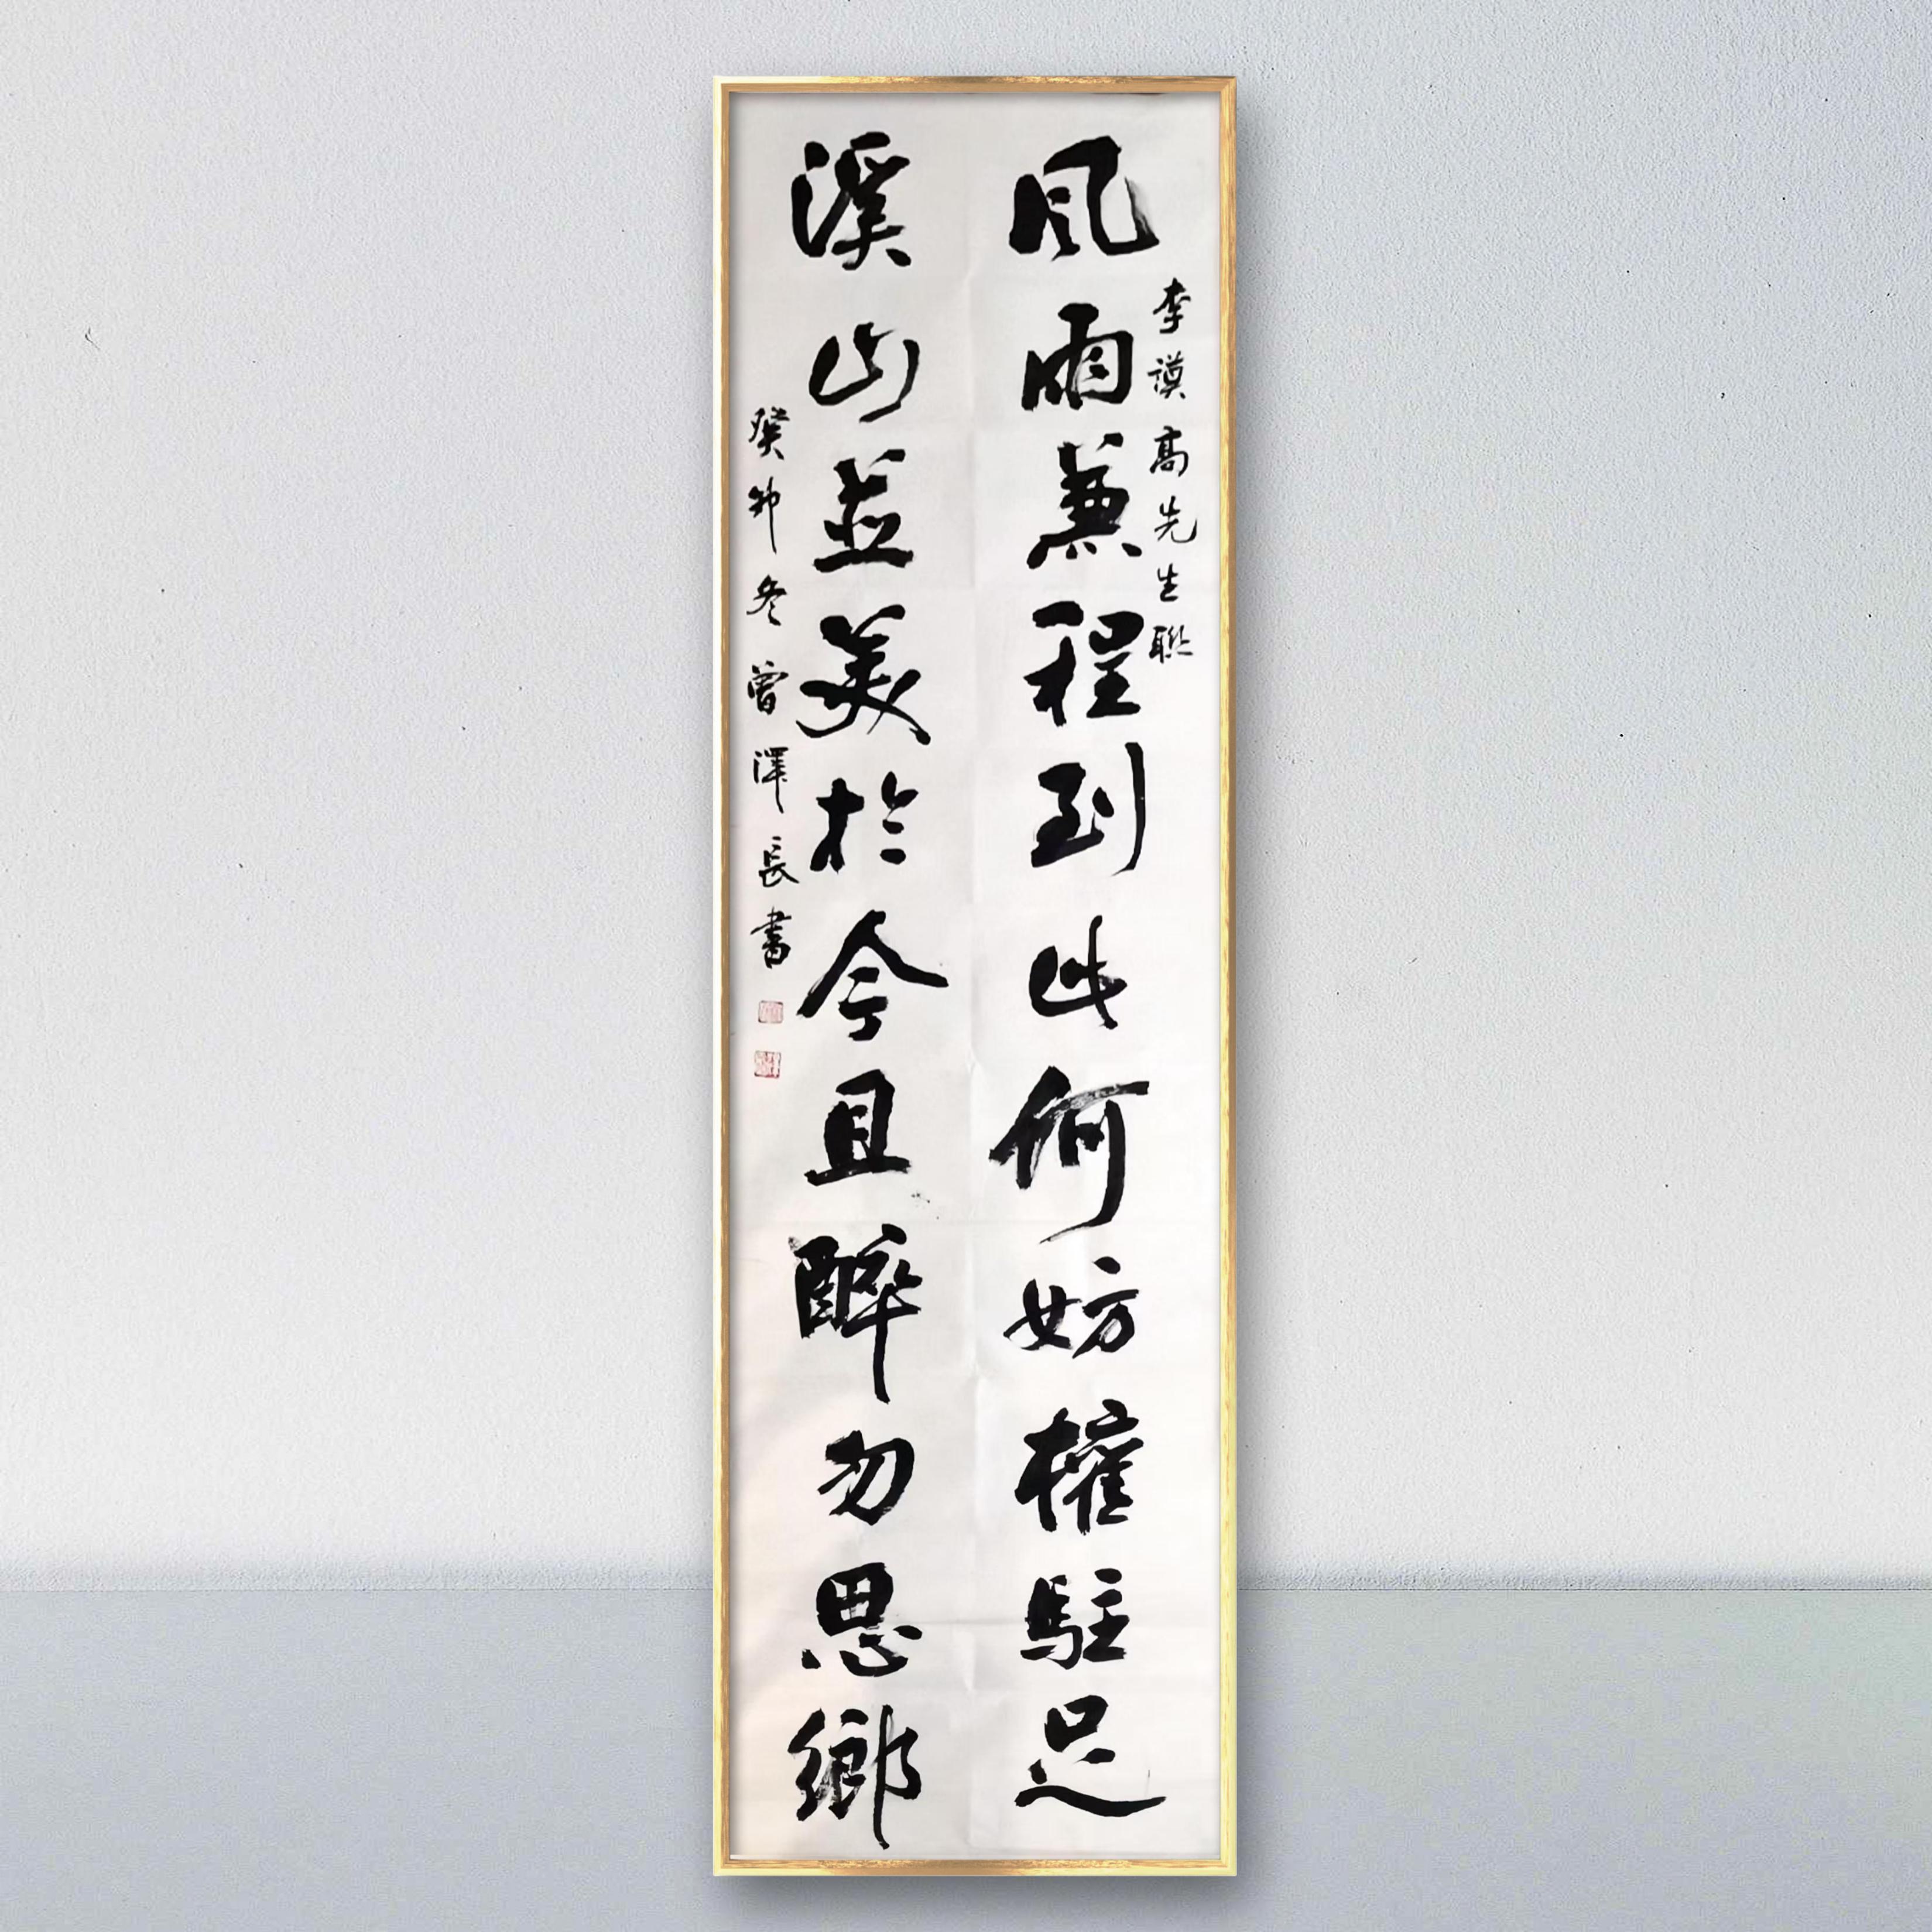 風雨兼程到此何妨權駐足
李謨高先生聯
溪山並美於今且醉勿思鄉
癸卯冬曾澤長書